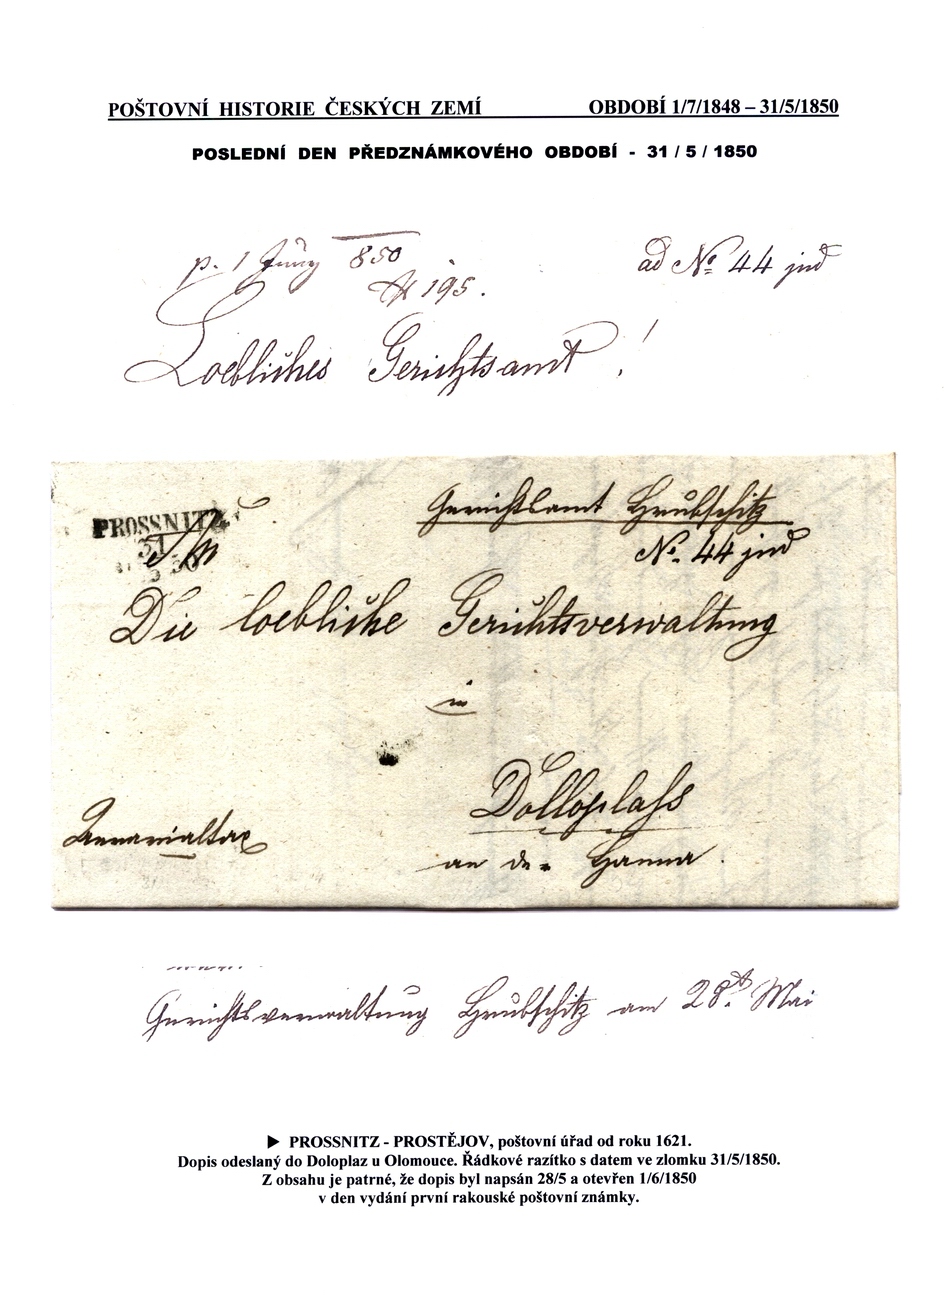 POŠTOVNÍ HISTORIE ČESKÝCH ZEMÍ OBDOBÍ 1/7/1848 – 31/5/1850
POSLEDNÍ DEN PŘEDZNÁMKOVÉHO OBDOBÍ - 31 / 5 / 1850
p. 1 Juny 850
ad No 44 jud
N 195.
Loebliches Gerichtsamt !
PROSSNITZ
31
Gerichtsamt Hrubschitz
No 44 jud
Die loebliche Gerichtsverwaltung
in
Dolloplass
an der Hanna.
Gerichtsverwaltung Hrubschitz am 28t. Mai
► PROSSNITZ - PROSTĚJOV, poštovní úřad od roku 1621.
Dopis odeslaný do Doloplaz u Olomouce. Řádkové razítko s datem ve zlomku 31/5/1850.
Z obsahu je patrné, že dopis byl napsán 28/5 a otevřen 1/6/1850
v den vydání první rakouské poštovní známky.